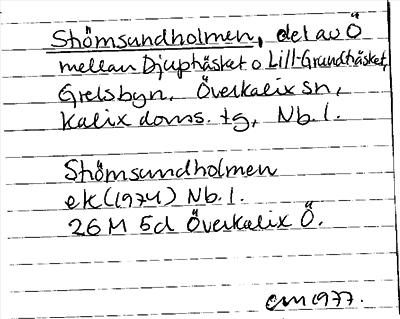 Stömsundholmen, del av Ö
mellan Djupträsket o Lill-Grundträsket,
Grelsbyn, Överkalix sn,
Kalix doms. tg, Nb. l.
Stömsundholmen
ek (1974) Nb. l.
26 M 5d Överkalix Ö.
1977.